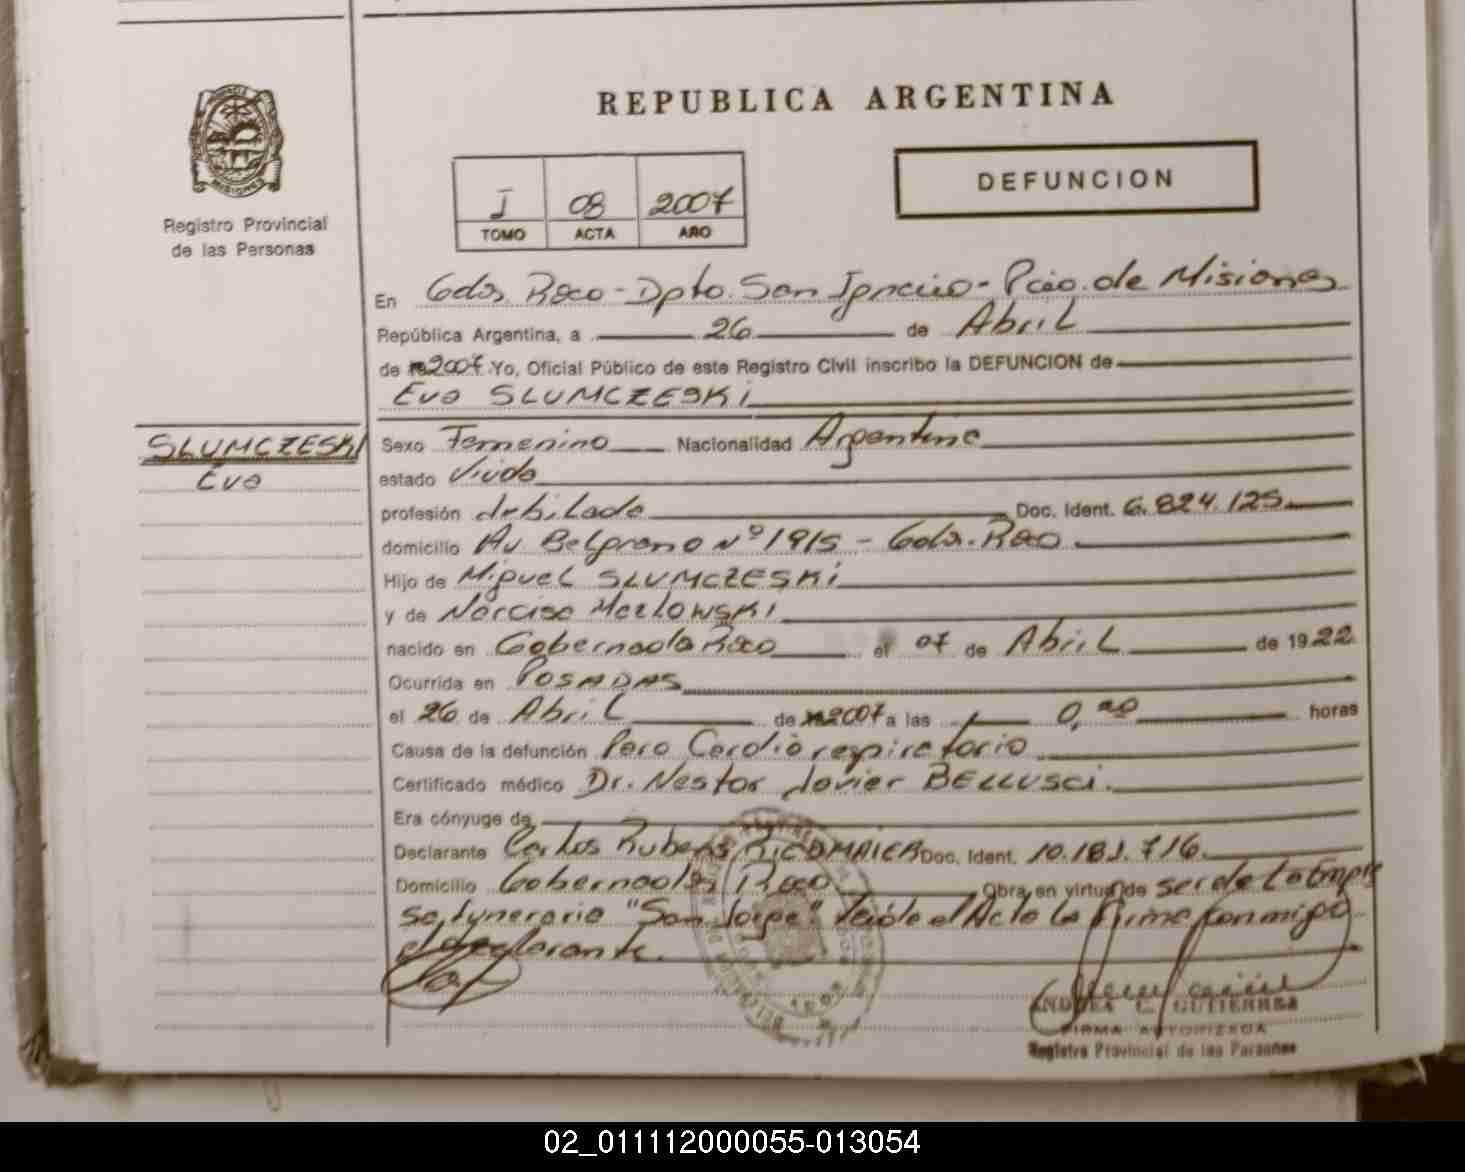 REPUBLICA ARGENTINA
MISIONES
Registro Provincial
de las Personas
I 08 2007
TOMO ACTA AÑO
DEFUNCION
En Gdor Roca - Dpto. San Ignacio - Pcia. de Misiones
República Argentina, a 26 de Abril
de 2007 Yo, Oficial Público de este Registro Civil inscribo la DEFUNCION de
Eva SLUMCZESKi
SLUMCZESKI
Eva
Sexo Femenino Nacionalidad Argentina
estado Viuda
profesión Jubilada Doc. Ident. 6.824.125
domicilio Av. Belgrano Nº 1915 - Gdor. Roca
Hijo de Miguel SLUMCZESKi
y de Narcisa
nacido en Gobernador Roca el 07 de Abril de 1922
Ocurrida en POSADAS
el 26 de Abril de 2007 a las horas
Causa de la defunción Paro Cardio respiratorio
Certificado médico Dr. Nestor Javier BELLUSCi.
Era cónyuge de
Declarante Carlos Ruben Doc. Ident. 10.181.716.
Domicilio Gobernador Roca Obra en virtud de ser de La Empre
sa funeraria "San Jorge" Leída el Acta La firma conmigo
el declarante.
ANDREA C. GUTIERREZ
FIRMA AUTORIZADA
Registro Provincial de las Personas
02_011112000055-013054